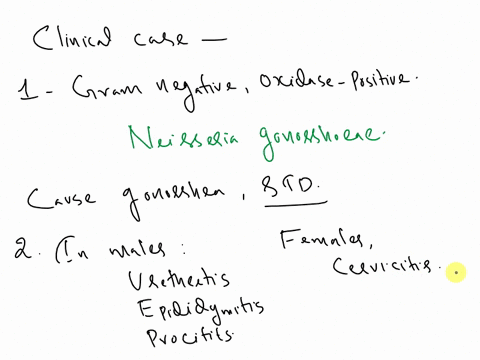 Clinical case —
1 - Gram negative, Oxidase-Positive.
Neisseria gonorrhoeae.
Cause gonorrhea, STD.
2. In males:
Urethritis
Epididymitis
Procitits.
Females,
Cervicitis.